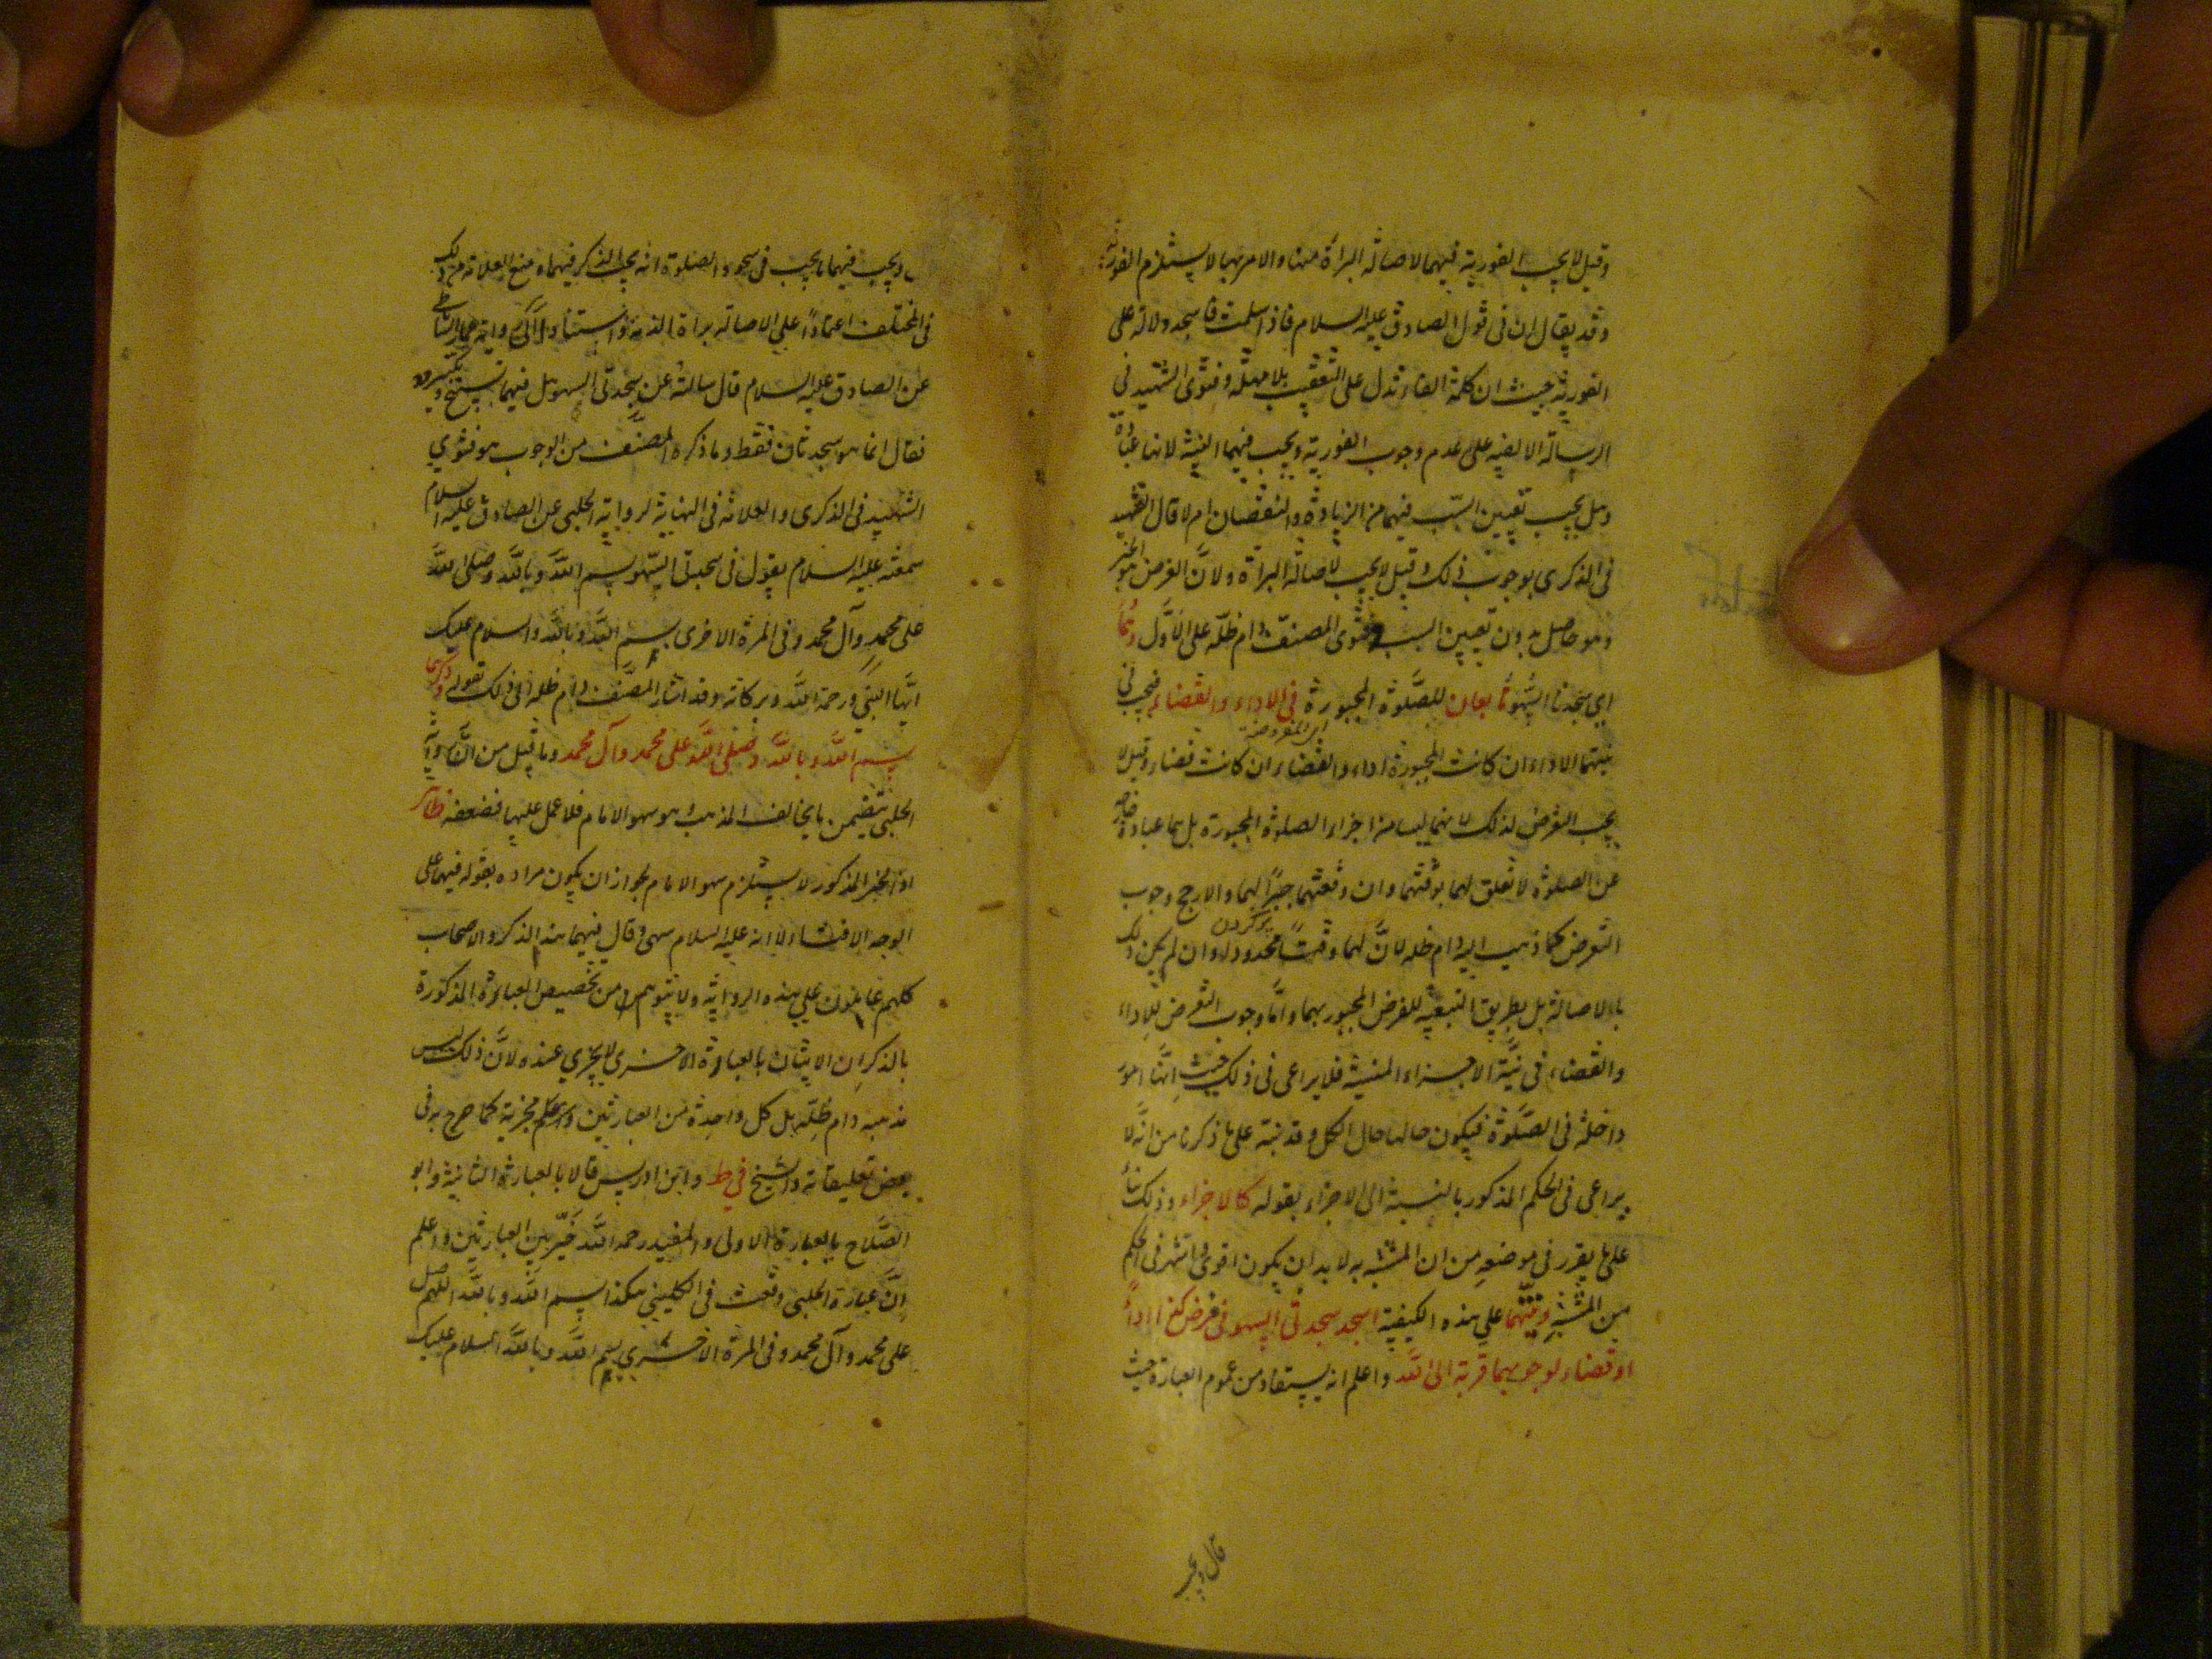 وقيل لا يجب الفورية فيهما لاصالة البراة منها والامر بها لا يستلزم الفورية
وقد يقال ان في قول الصادق عليه السلام فاذا سلمت فاسجد دلالة على
الفورية حيث ان كلمة الفاء تدل على التعقيب بلا مهلة وفتوى الشهيد في
الرسالة الالفيه على عدم وجوب الفورية ويجب فيهما النية لانها عبادة
وهل يجب تعيين السبب فيهما من الزيادة والنقصان ام لا قال الشهيد
في الذكرى بوجوب ذلك وقيل لا يجب لاصالة البراة ولان الغرض هو الجبر
وهو حاصل بدون تعيين السبب وفتوى المصنف دام ظله على الاول وهما
اي سجدتا السهو تابعان للصلوة المجبورة في الاداء والقضاء فيجب في
اي المفروضة
نيتهما الاداء ان كانت المجبورة اداء والقضاء ان كانت قضاء وقيل لا
يجب التعرض لذلك لانهما ليسا من اجزاء الصلوة المجبورة بل هما عبادة خارجة
عن الصلوة لا تعلق لهما بوقتهما وان وقعتهما جبرًا لهما والارجح وجوب
پر كردن
التعرض كما ذهب اليه دام ظله لان لهما وقتًا محدودا وان لم يكن ذلك
بالاصالة بل بطريق التبعية للفرض المجبور بهما واما وجوب التعرض للاداء
والقضاء في نية الاجزاء المنسية فلا يراعى في ذلك حيث انها امور
داخلة في الصلوة فيكون حالها حال الكل وقد نبه على ما ذكرنا من انه لا
يراعى في الحكم المذكور بالنسبة الى الاجزاء بقوله كالاجزاء وذلك بناء
على ما يقرر في موضعه من ان المشبه به لا بد ان يكون اقوى واشهر في الحكم
من المشبه ونيتهما على هذه الكيفية اسجد سجدتي السهو في فرض كذا اداءً
او قضاء لوجوبهما قربة الى الله واعلم انه يستفاد من عموم العبارة حيث
قال ويجب
ويجب فيهما ما يجب في سجود الصلوة انه يجب الذكر فيهما ومنع العلامة من ذلك
في المختلف اعتمادًا على الاصالة براة الذمة واستنادا الى رواية عمار الساباطي
عن الصادق عليه السلام قال سالته عن سجدتي السهو هل فيهما تسبيح وتكبير
فقال انما هو سجدتان فقط وما ذكره المصنف من الوجوب هو فتوى
الشهيد في الذكرى والعلامة في النهاية لرواية الحلبي عن الصادق عليه السلام
سمعته عليه السلام يقول في سجدتي السهو بسم الله وبالله وصلى الله
على محمد وآل محمد وفي المرة الاخرى بسم الله وبالله والسلام عليك
ايها النبي ورحمة الله وبركاته وقد اشار المصنف دام ظله الى ذلك بقوله وذكرهما
بسم الله وبالله وصلى الله على محمد وآل محمد وما قيل من ان رواية
الحلبي تتضمن ما يخالف المذهب وهو سهو الامام فلا عمل عليها فضعفه ظاهر
اذ الخبر المذكور لا يستلزم سهو الامام لجواز ان يكون مراده بقوله فيهما على
الوجه الافتاء لا انه عليه السلام سهى وقال فيهما هذا الذكر والاصحاب
كلهم عاملون على هذه الرواية ولا يتوهم من تخصيص العبارة المذكورة
بالذكر ان الاتيان بالعبارة الاخرى لا يجزي عنده لان ذلك ليس
مذهبه دام ظله بل كل واحدة من العبارتين مجزية كما صرح به في
بعض تعليقاته والشيخ في ط وابن ادريس قالا بالعبارة الثانية وابو
الصلاح بالعبارة الاولى والمفيد رحمه الله خير بين العبارتين واعلم
ان عبارة الحلبي وقعت في الكليني هكذا بسم الله وبالله اللهم صل
على محمد وآل محمد وفي المرة الاخرى بسم الله وبالله السلام عليك